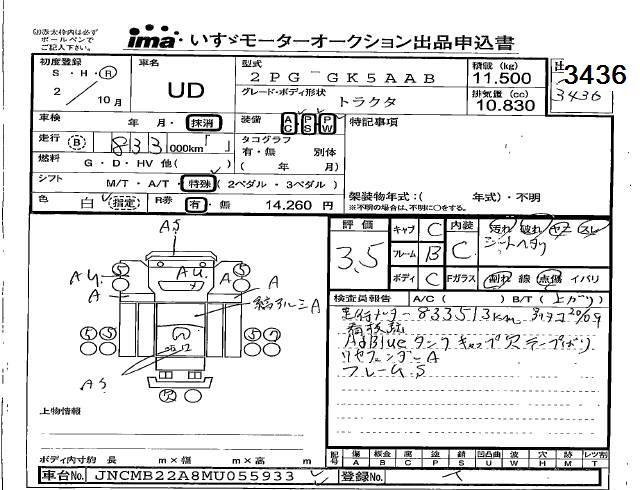 (注)赤太枠内は必ず
ボールペンで
ご記入下さい。
ima いすゞモーターオークション出品申込書
初度登録
S・H・R
2 / 10月
車名
UD
型式
2PG GK5AAB
グレード・ボディ形状
トラクタ
積載(kg)
11.500
排気量(cc)
10.830
3436
3436
車検 年 月・抹消
装備 AC PS PW
特記事項
走行 B 833 000km「 」
タコグラフ
有・無 別体
( 年 月)
燃料 G・D・HV 他( )
シフト M/T・A/T・特殊(2ペダル・3ペダル)
色 白(指定) R券 有・無 14.260 円
架装物年式:( 年式)・不明
※不明の場合は、不明に○をする。
評価
3.5
キャブ C
フレーム B
ボディ C
内装 C
汚れ 破れ ヤニ スレ
シートヘタリ
Fガラス 割れ 線 点傷 イバリ
検査員報告 A/C( ) B/T(上がり)
走行メーター833513km
AdBlueタンクキャップ欠
リヤフェンダーA
フレームS
AS
AU
AU.
A
A
縞アルミA
AS
上物情報
ボディ内寸約 長 m×幅 m×高 m
記号 傷A 板金B 腐C 塗P 錆S 凹凸曲U 波W 穴H 跡M レツ割T
車台No. JNCMB22A8MU055933
登録No.